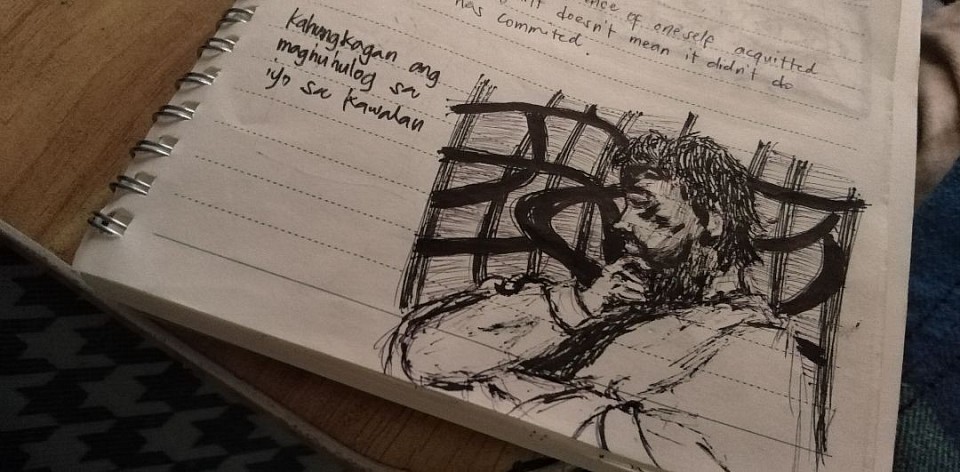 of oneself acquitted
doesn't mean it didn't do
has commited.
Kahungkagan ang
maghuhulog sa
iyo sa kawalan